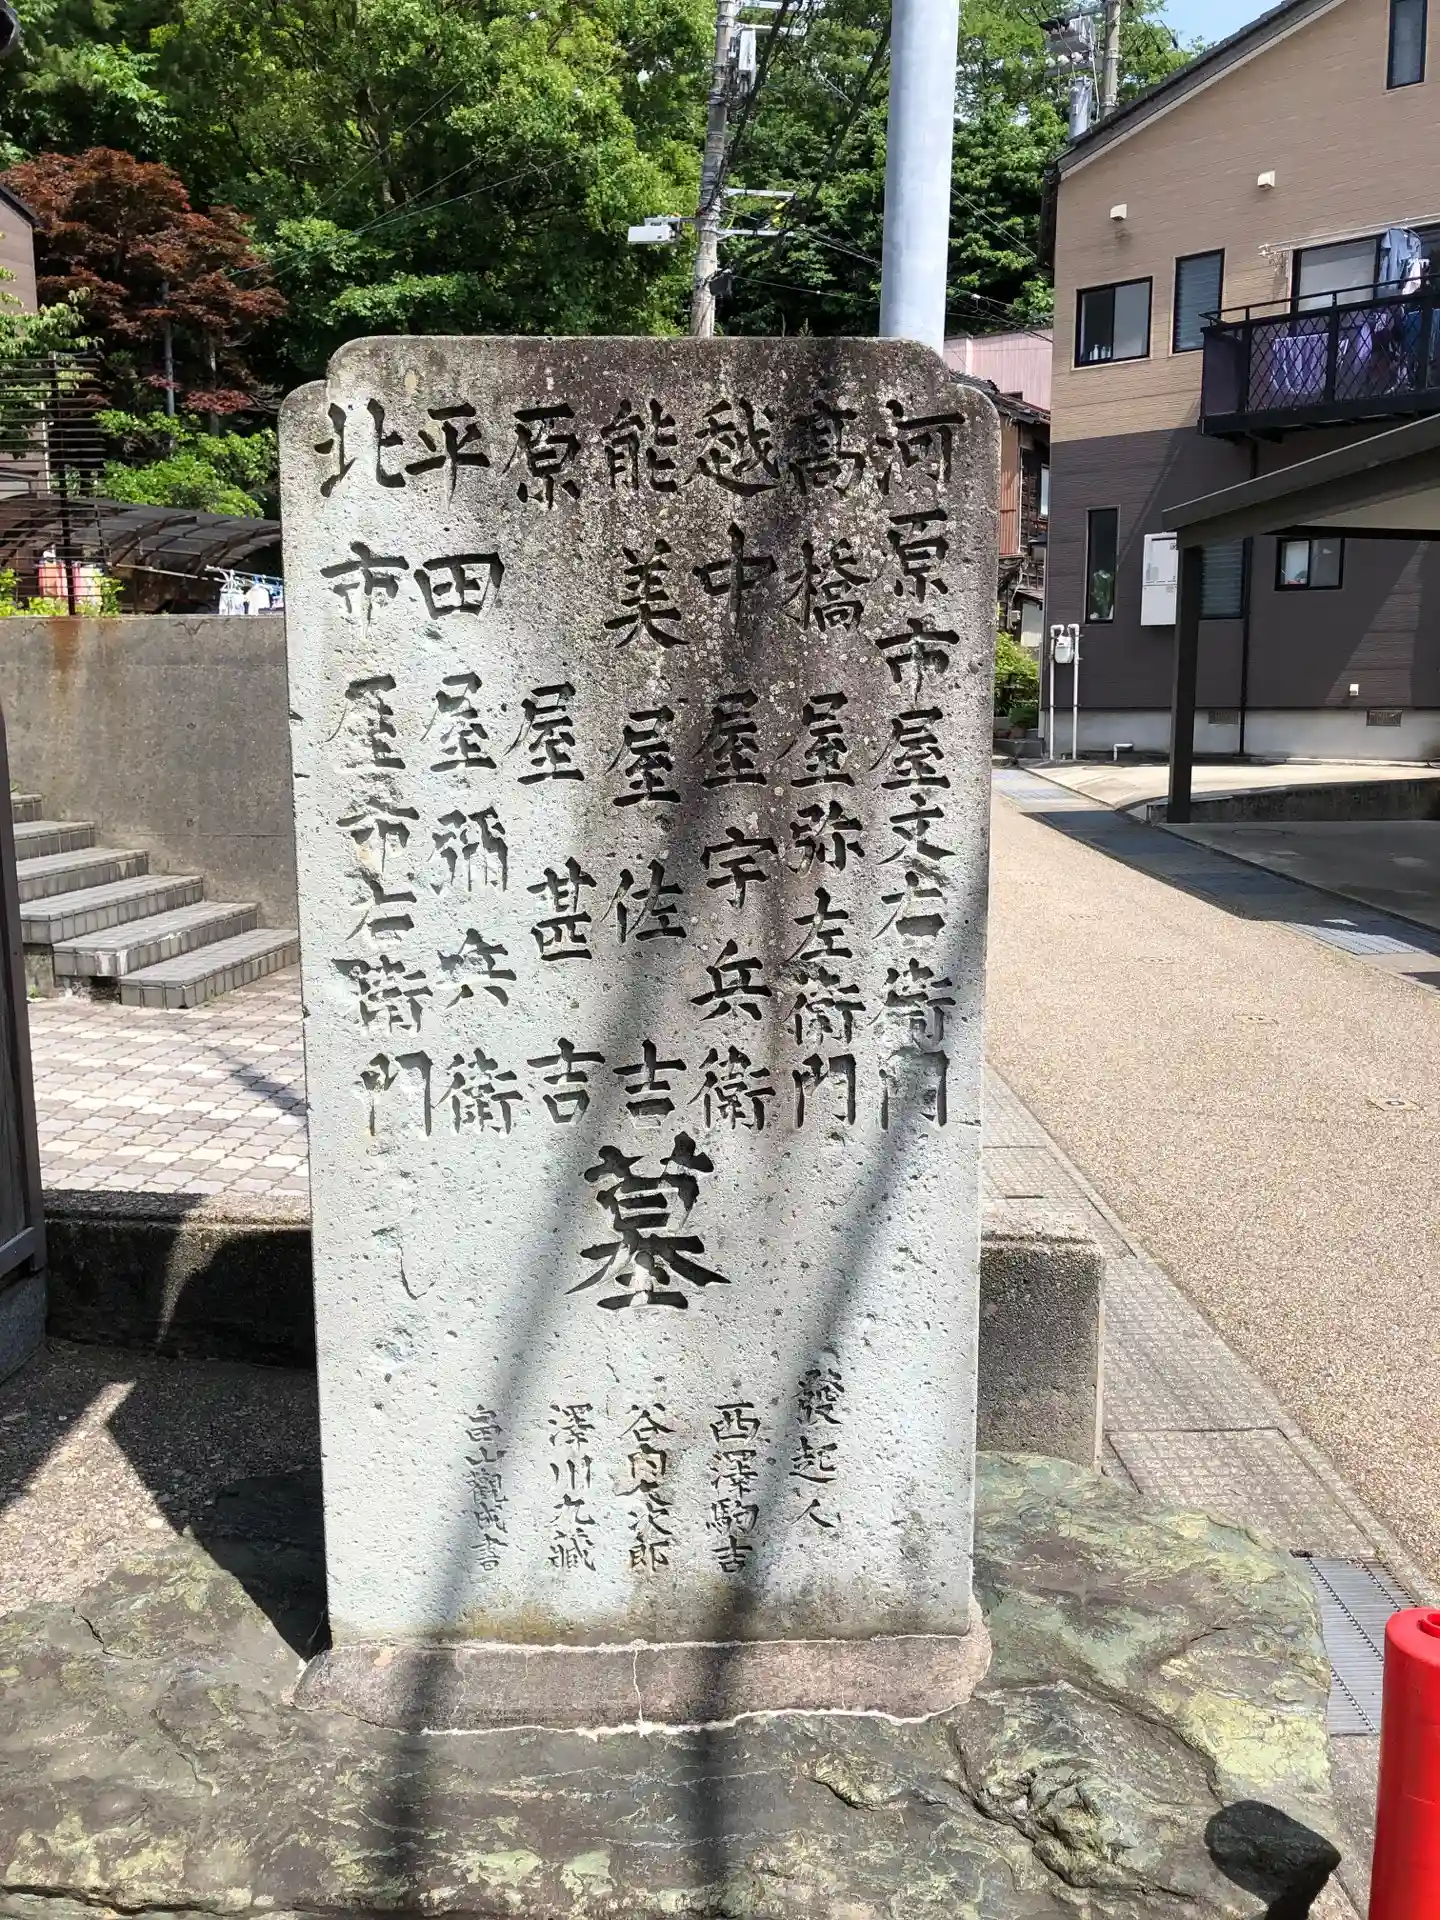 河原市屋文右衛門
髙橋屋弥左衛門
越中屋宇兵衛
能美屋佐吉
原屋甚吉
平田屋彌兵衛
北市屋市右衛門
墓
發起人
西澤駒吉
谷内次郎
澤川九藏
畠山觀成書